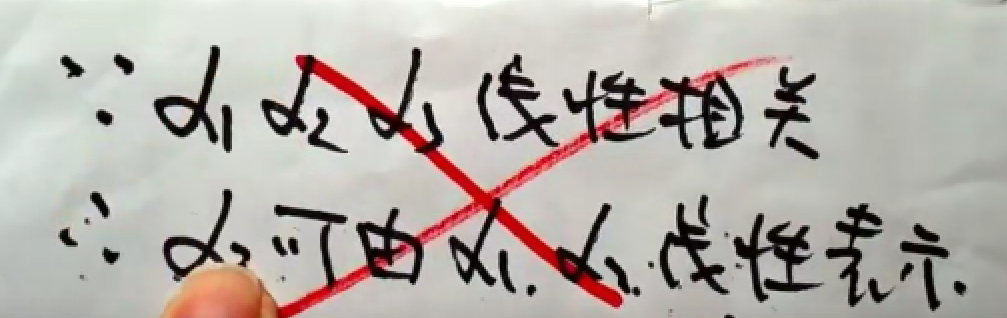 ∵ α₁ α₂ α₃ 线性相关
∴ α₃可由α₁. α₂.线性表示.